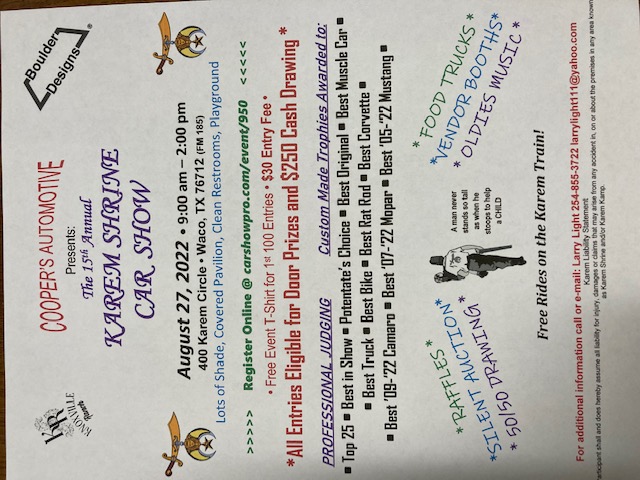 Boulder
Designs
KR
KNOXVILLE
COOPER'S AUTOMOTIVE
Presents:
The 15th Annual
KAREM SHRINE
CAR SHOW
August 27, 2022 • 9:00 am – 2:00 pm
400 Karem Circle • Waco, TX 76712 (FM 185)
Lots of Shade, Covered Pavilion, Clean Restrooms, Playground
>>>>> Register Online @ carshowpro.com/event/950 <<<<<
• Free Event T-Shirt for 1st 100 Entries • $30 Entry Fee •
*All Entries Eligible for Door Prizes and $250 Cash Drawing *
PROFESSIONAL JUDGING Custom Made Trophies Awarded to:
▪ Top 25 ▪ Best in Show ▪ Potentate's Choice ▪ Best Original ▪ Best Muscle Car ▪
▪ Best Truck ▪ Best Bike ▪ Best Rat Rod ▪ Best Corvette ▪
▪ Best '09-'22 Camaro ▪ Best '07-'22 Mopar ▪ Best '05-'22 Mustang ▪
*RAFFLES*
*SILENT AUCTION*
* 50/50 DRAWING *
A man never
stands so tall
as when he
stoops to help
a CHILD
* FOOD TRUCKS *
*VENDOR BOOTHS*
* OLDIES MUSIC *
Free Rides on the Karem Train!
For additional information call or e-mail: Larry Light 254-855-3722 larrylight111@yahoo.com
Karem Liability Statement
articipant shall and does hereby assume all liability for injury, damages or claims that may arise from any accident in, on or about the premises in any area known
as Karem Shrine and/or Karem Kamp.